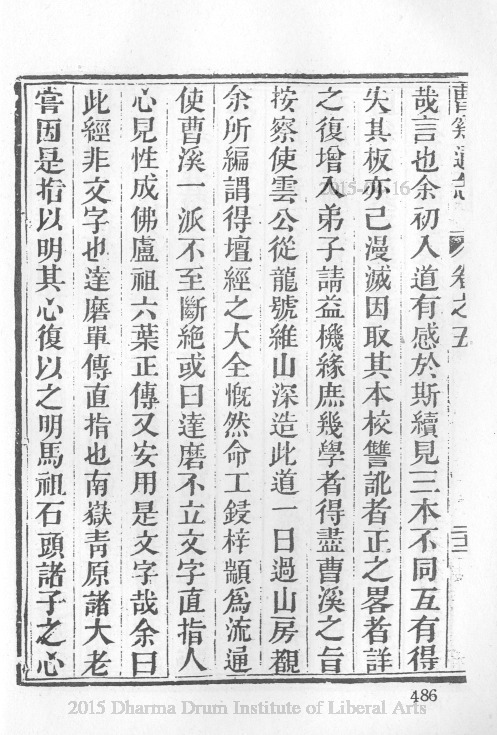 曹溪通志 卷之五
哉言也余初入道有感於斯續見三本不同互有得
失其板亦已漫滅因取其本校讐訛者正之畧者詳
之復增入弟子請益機緣庶幾學者得盡曹溪之旨
按察使雲公從龍號維山深造此道一日過山房觀
余所編謂得壇經之大全慨然命工鋟梓顓爲流通
使曹溪一派不至斷絶或曰達磨不立文字直指人
心見性成佛盧祖六葉正傳又安用是文字哉余曰
此經非文字也達磨單傳直指也南嶽青原諸大老
嘗因是指以明其心復以之明馬祖石頭諸子之心
486
2015 Dharma Drum Institute of Liberal Arts